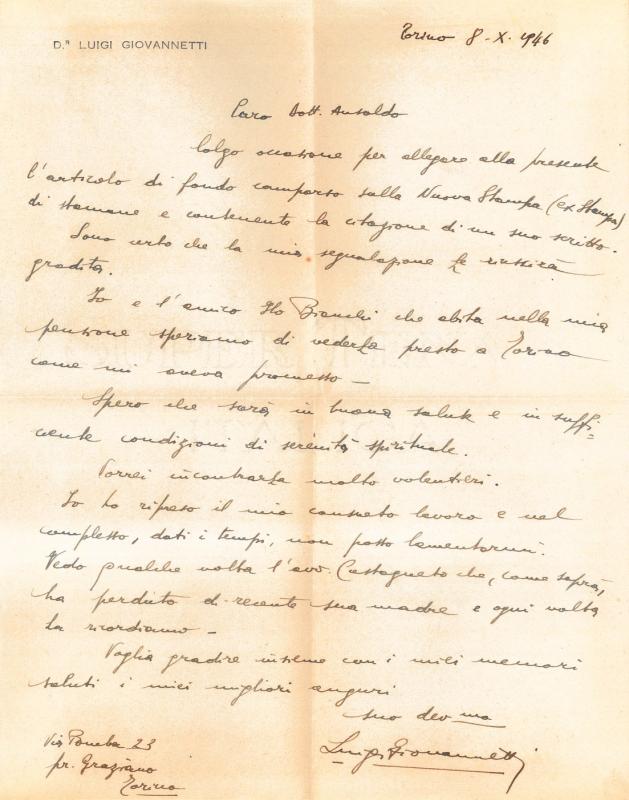 Torino 8-X-1946
D.r LUIGI GIOVANNETTI
Caro Dott. Ansaldo
Colgo occasione per allegare alla presente
l'articolo di fondo comparso sulla Nuova Stampa (ex Stampa)
di stamane e contenente la citazione di un suo scritto.
Sono certo che la mia segnalazione Le riuscirà
gradita.
Io e l'amico Bianchi che abita nella mia
pensione speriamo di vederLa presto a Torino
come mi aveva promesso –
Spero che sarà in buona salute e in suffi=
ciente condizioni di serenità spirituale.
Vorrei incontrarLa molto volentieri.
Io ho ripreso il mio consueto lavoro e nel
complesso, dati i tempi, non posso lamentarmi.
Vedo qualche volta l'avv. Castagneto che, come saprà,
ha perduto di recente sua madre e ogni volta
La ricordiamo –
Voglia gradire insieme con i miei memori
saluti i miei migliori auguri
suo dev mo
Luigi Giovannetti
Via Pomba 23
pr. Graziano
Torino